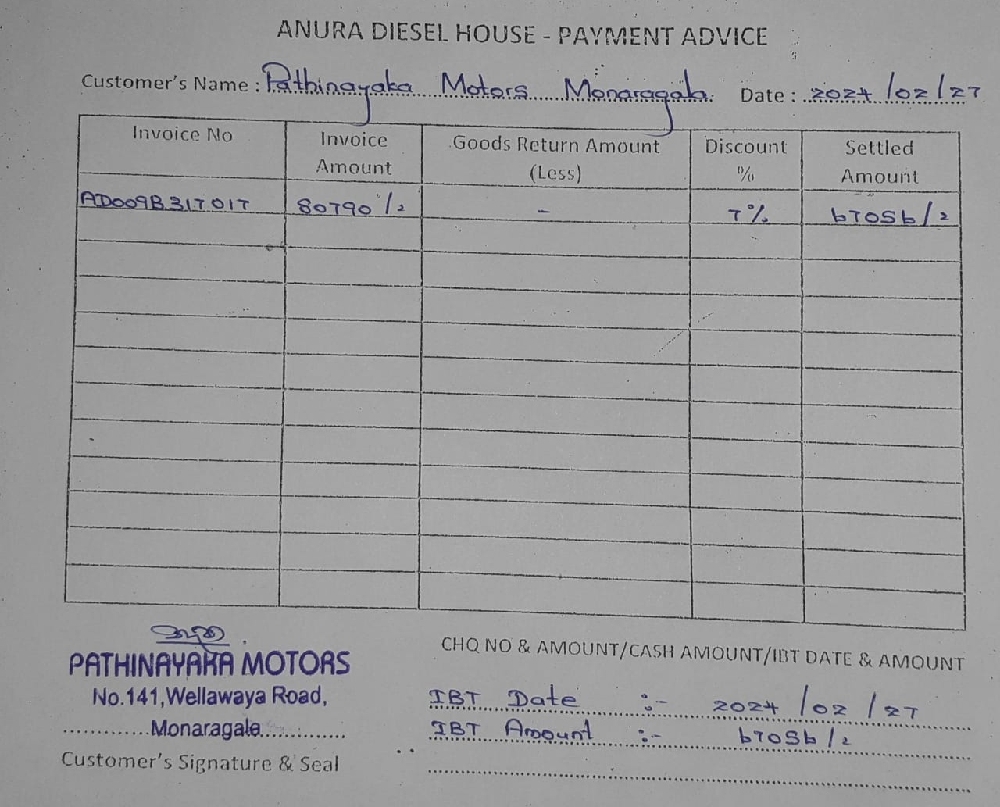 ANURA DIESEL HOUSE - PAYMENT ADVICE
Customer's Name : Pathinayaka Motors Monaragala. Date : 2024/02/27
Invoice No Invoice Amount Goods Return Amount (Less) Discount % Settled Amount
AD009B317017 80790/= - 7% 67056/=
PATHINAYAKA MOTORS
No.141,Wellawaya Road,
Monaragale
Customer's Signature & Seal
CHQ NO & AMOUNT/CASH AMOUNT/IBT DATE & AMOUNT
IBT Date :- 2024/02/27
IBT Amount :- 67056/=